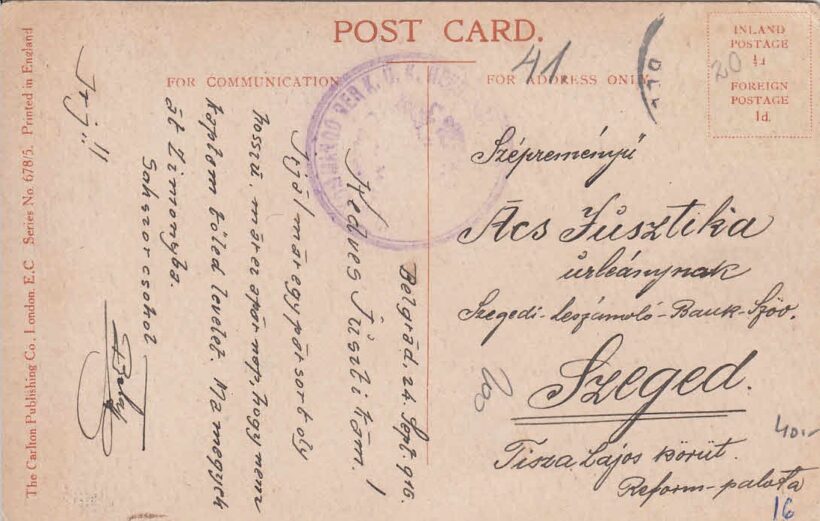 POST CARD.
FOR COMMUNICATION
FOR ADDRESS ONLY
INLAND
POSTAGE
½d
FOREIGN
POSTAGE
1d.
41.
20
Belgrád, 24 Sept 916.
Kedves Jusztikám!
Irjál már egy pár sort oly
hosszú, már ez a pár nap, hogy nem
kaptam tőled levelet. Ma megyek
át Zimonyba.
Sokszor csókol
Irj!!
Szépreményű
Ács Jusztika
úrleánynak
Szegedi-leszámoló-Bank-Szöv.
Szeged.
Tisza Lajos körút.
Reform-palota
200
40.-
16
The Carlton Publishing Co., London, E.C Series No. 678/5. Printed in England